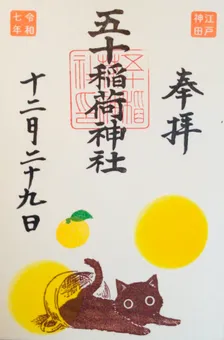 江戸
神田
奉拝
五十稲荷神社
令和
七年
十二月二十九日